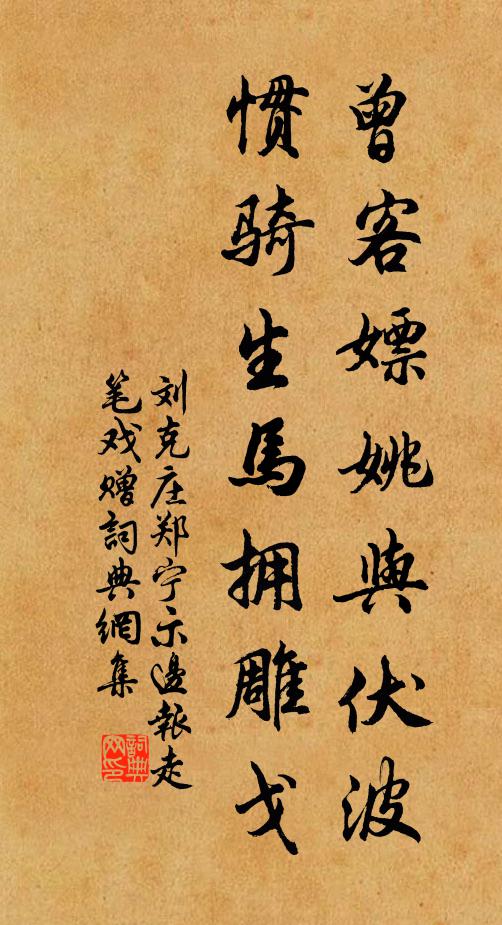 曾客嫖姚與伏波
慣骑生馬拥雕戈
刘克庄郑宁示邊報走
笔戏赠詞典網集
詞典
网印